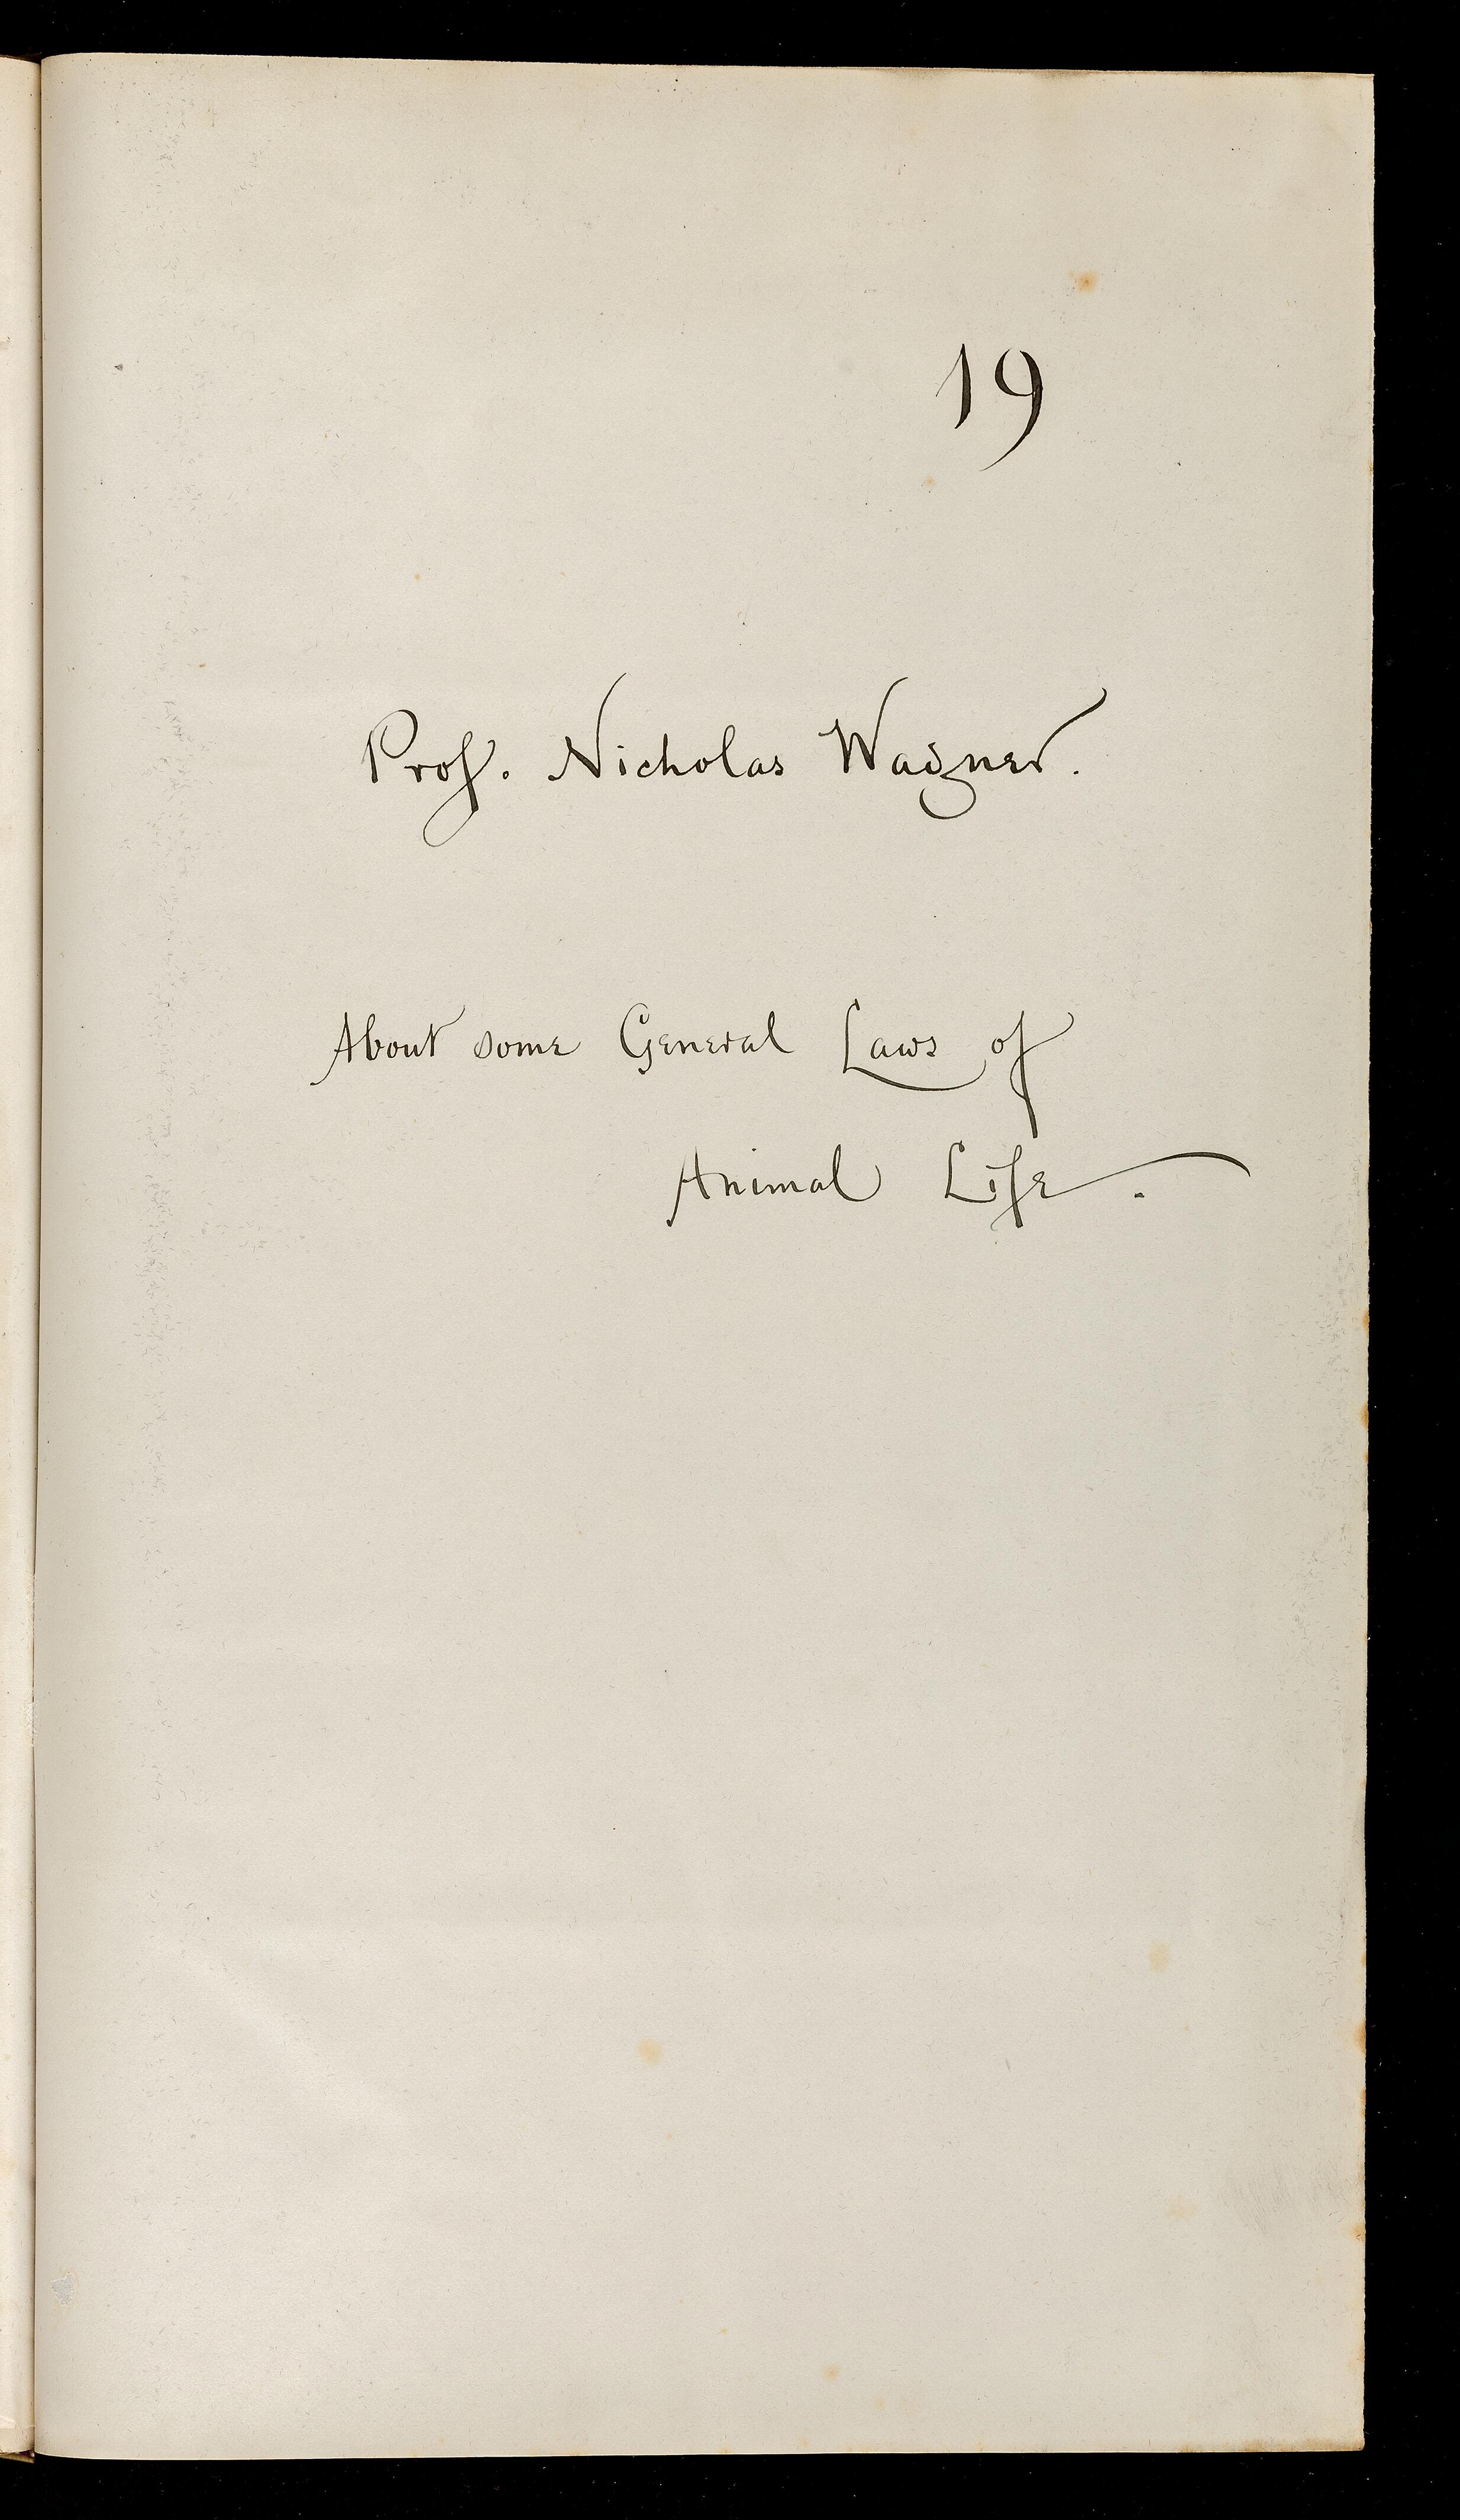 19
Prof. Nicholas Wagner.
About some General Laws of
Animal Life.